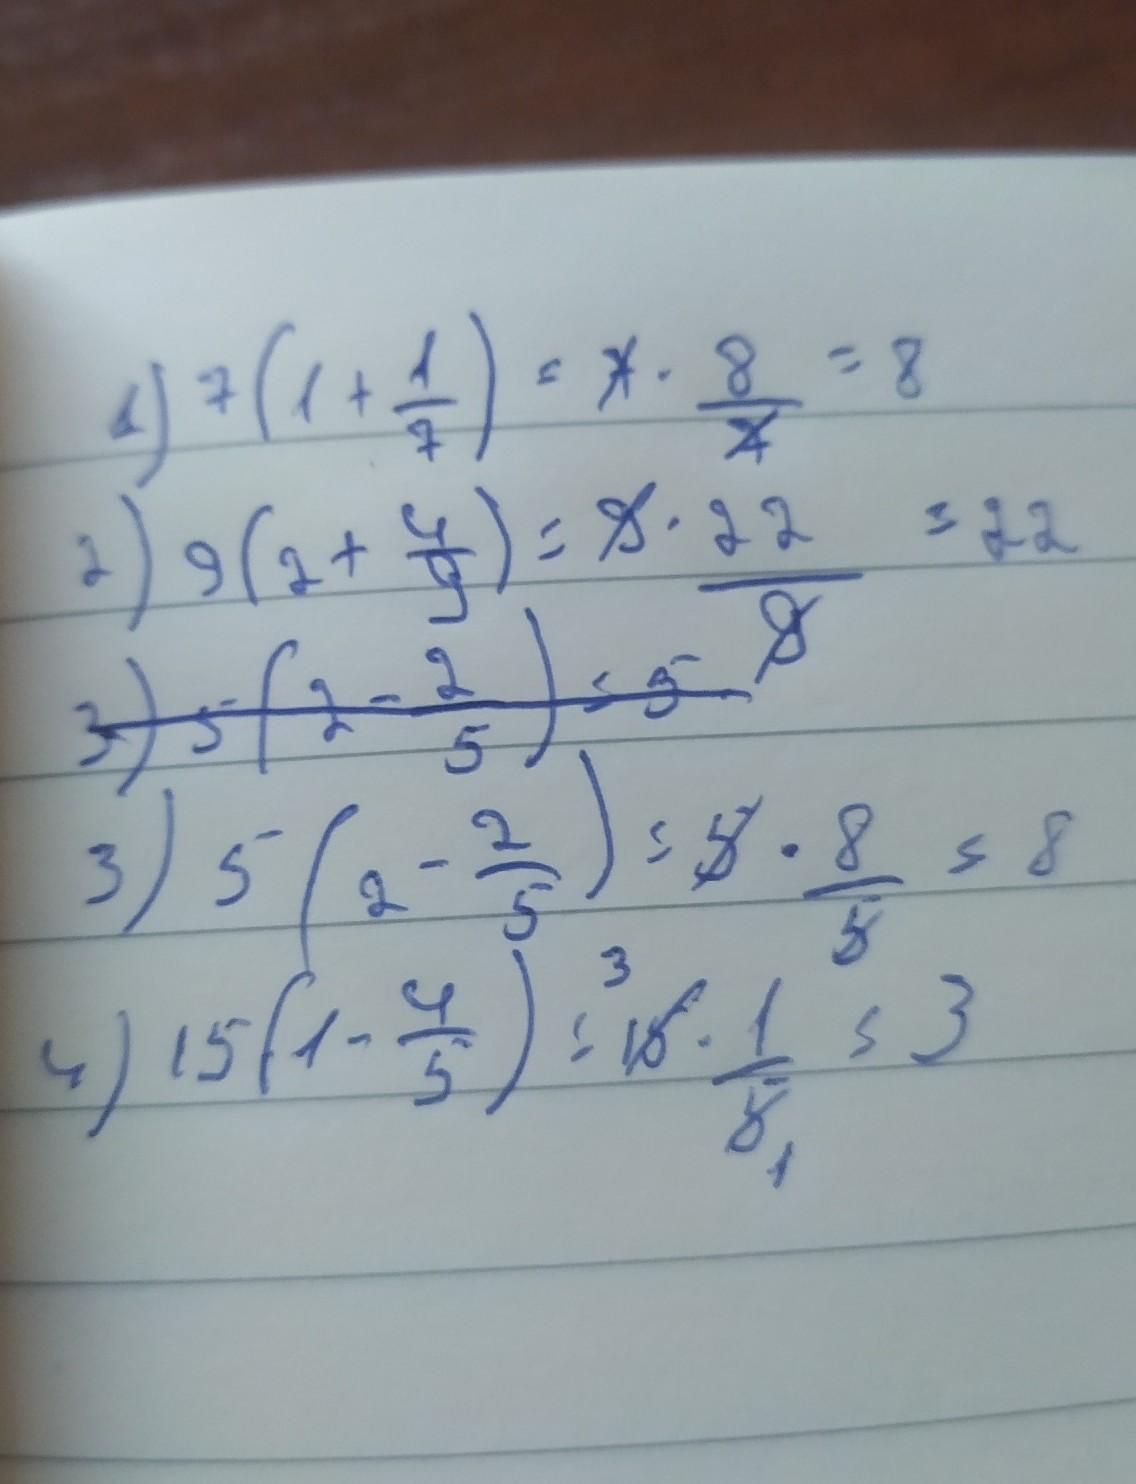 1) 7(1 + 1/7) = 7 · 8/7 = 8
2) 9(2 + 4/9) = 9 · 22/9 = 22
3) 5(2 - 2/5) = 5
3) 5(2 - 2/5) = 5 · 8/5 = 8
4) 15(1 - 4/5) = 15 3 · 1/5 1 = 3